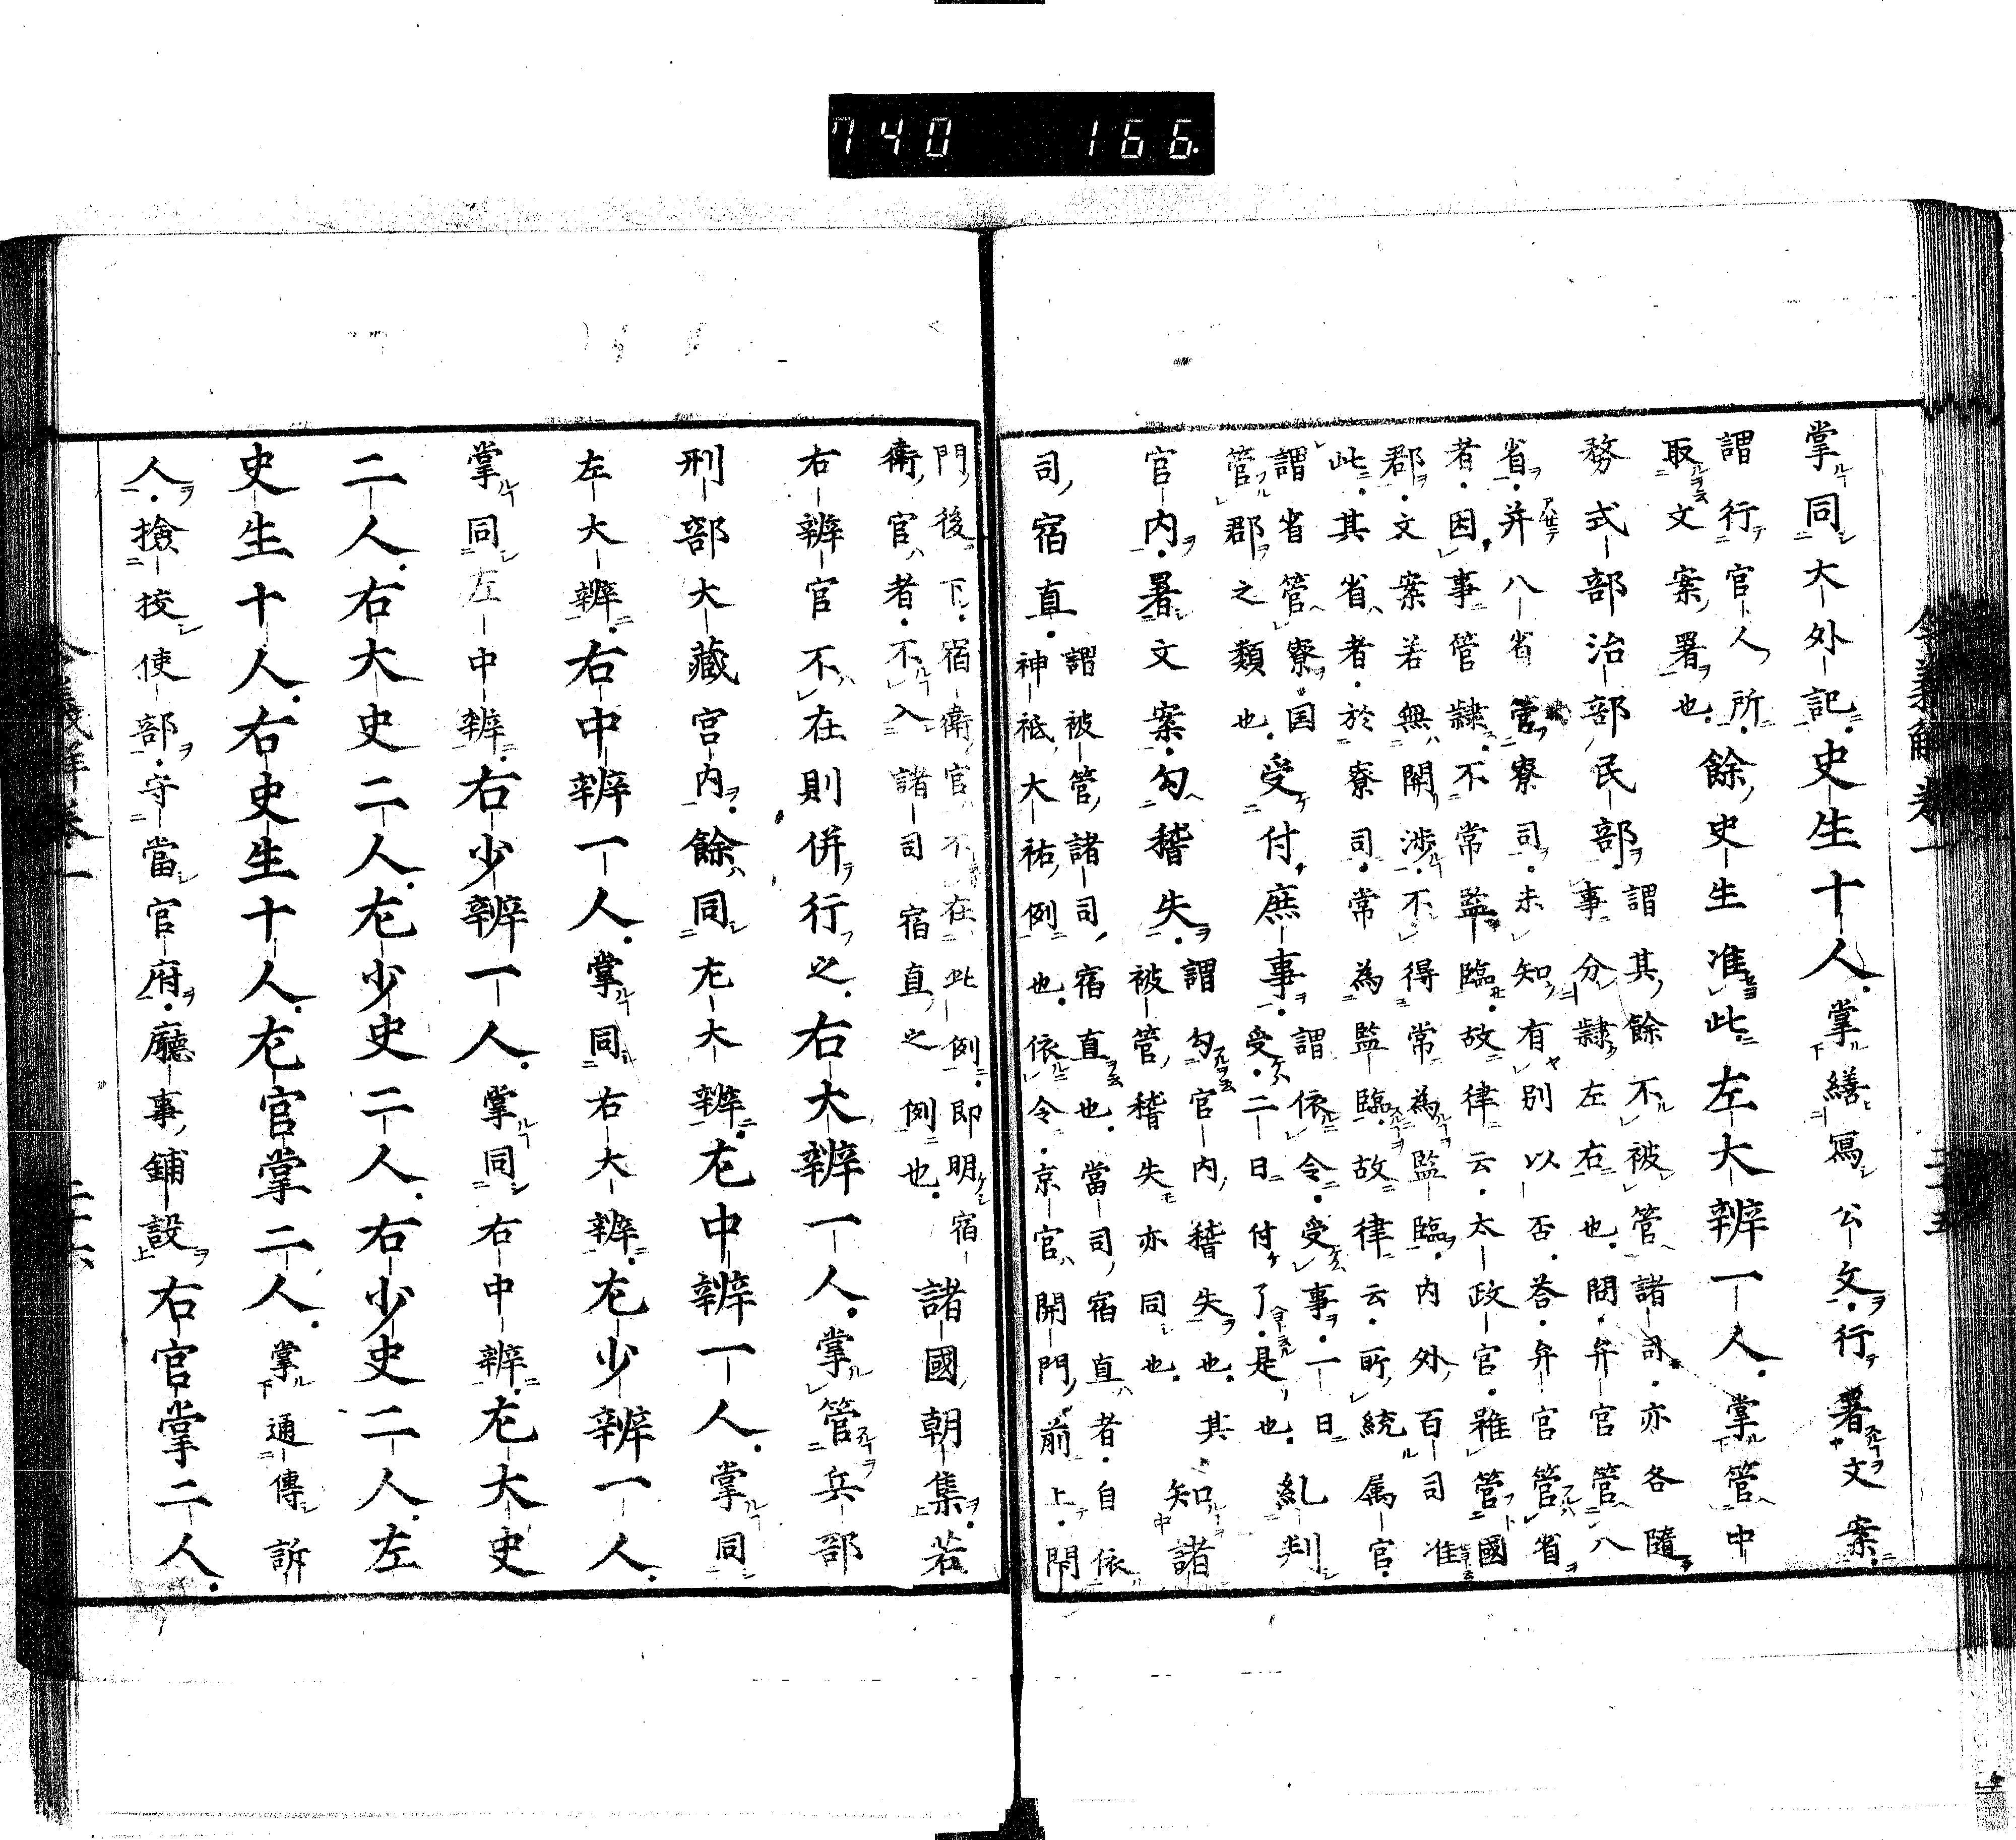 740 166.
掌同大外記史生十人掌繕寫公文行署文案
謂行官人所
取文案署也餘史生准此左大辨一人掌管中
務式部治部民部事
謂其餘不被管諸司亦各隨
分隷左右也問弁官管八
省并八省管寮司未知有別以否荅弁官管省
者因事管隷不常監臨故律云太政官雖管國
郡文案若無關涉不得常為監臨内外百司准
此其省者於寮司常為監臨故律云所統属官
謂省管寮国
管郡之類也受付庶事
謂依令受事一日
受二日付了是也糺判
官内署文案勾稽失
謂勾官内稽失也其
被管稽失亦同也知諸
司宿直
謂被管諸司宿直也當司宿直者自依
神祇大祐例也依令京官開門前上閇
門後下宿衛官不在此例即明宿
衛官者不入諸司宿直之例也諸國朝集若
右辨官不在則併行之右大辨一人掌管兵部
刑部大藏宮内餘同左大辨左中辨一人掌同
左大辨右中辨一人掌同右大辨左少辨一人
掌同左中辨右少辨一人掌同右中辨左大史
二人右大史二人左少史二人右少史二人左
史生十人右史生十人左官掌二人掌通傳訴
人撿挍使部守當官府廳事鋪設右官掌二人